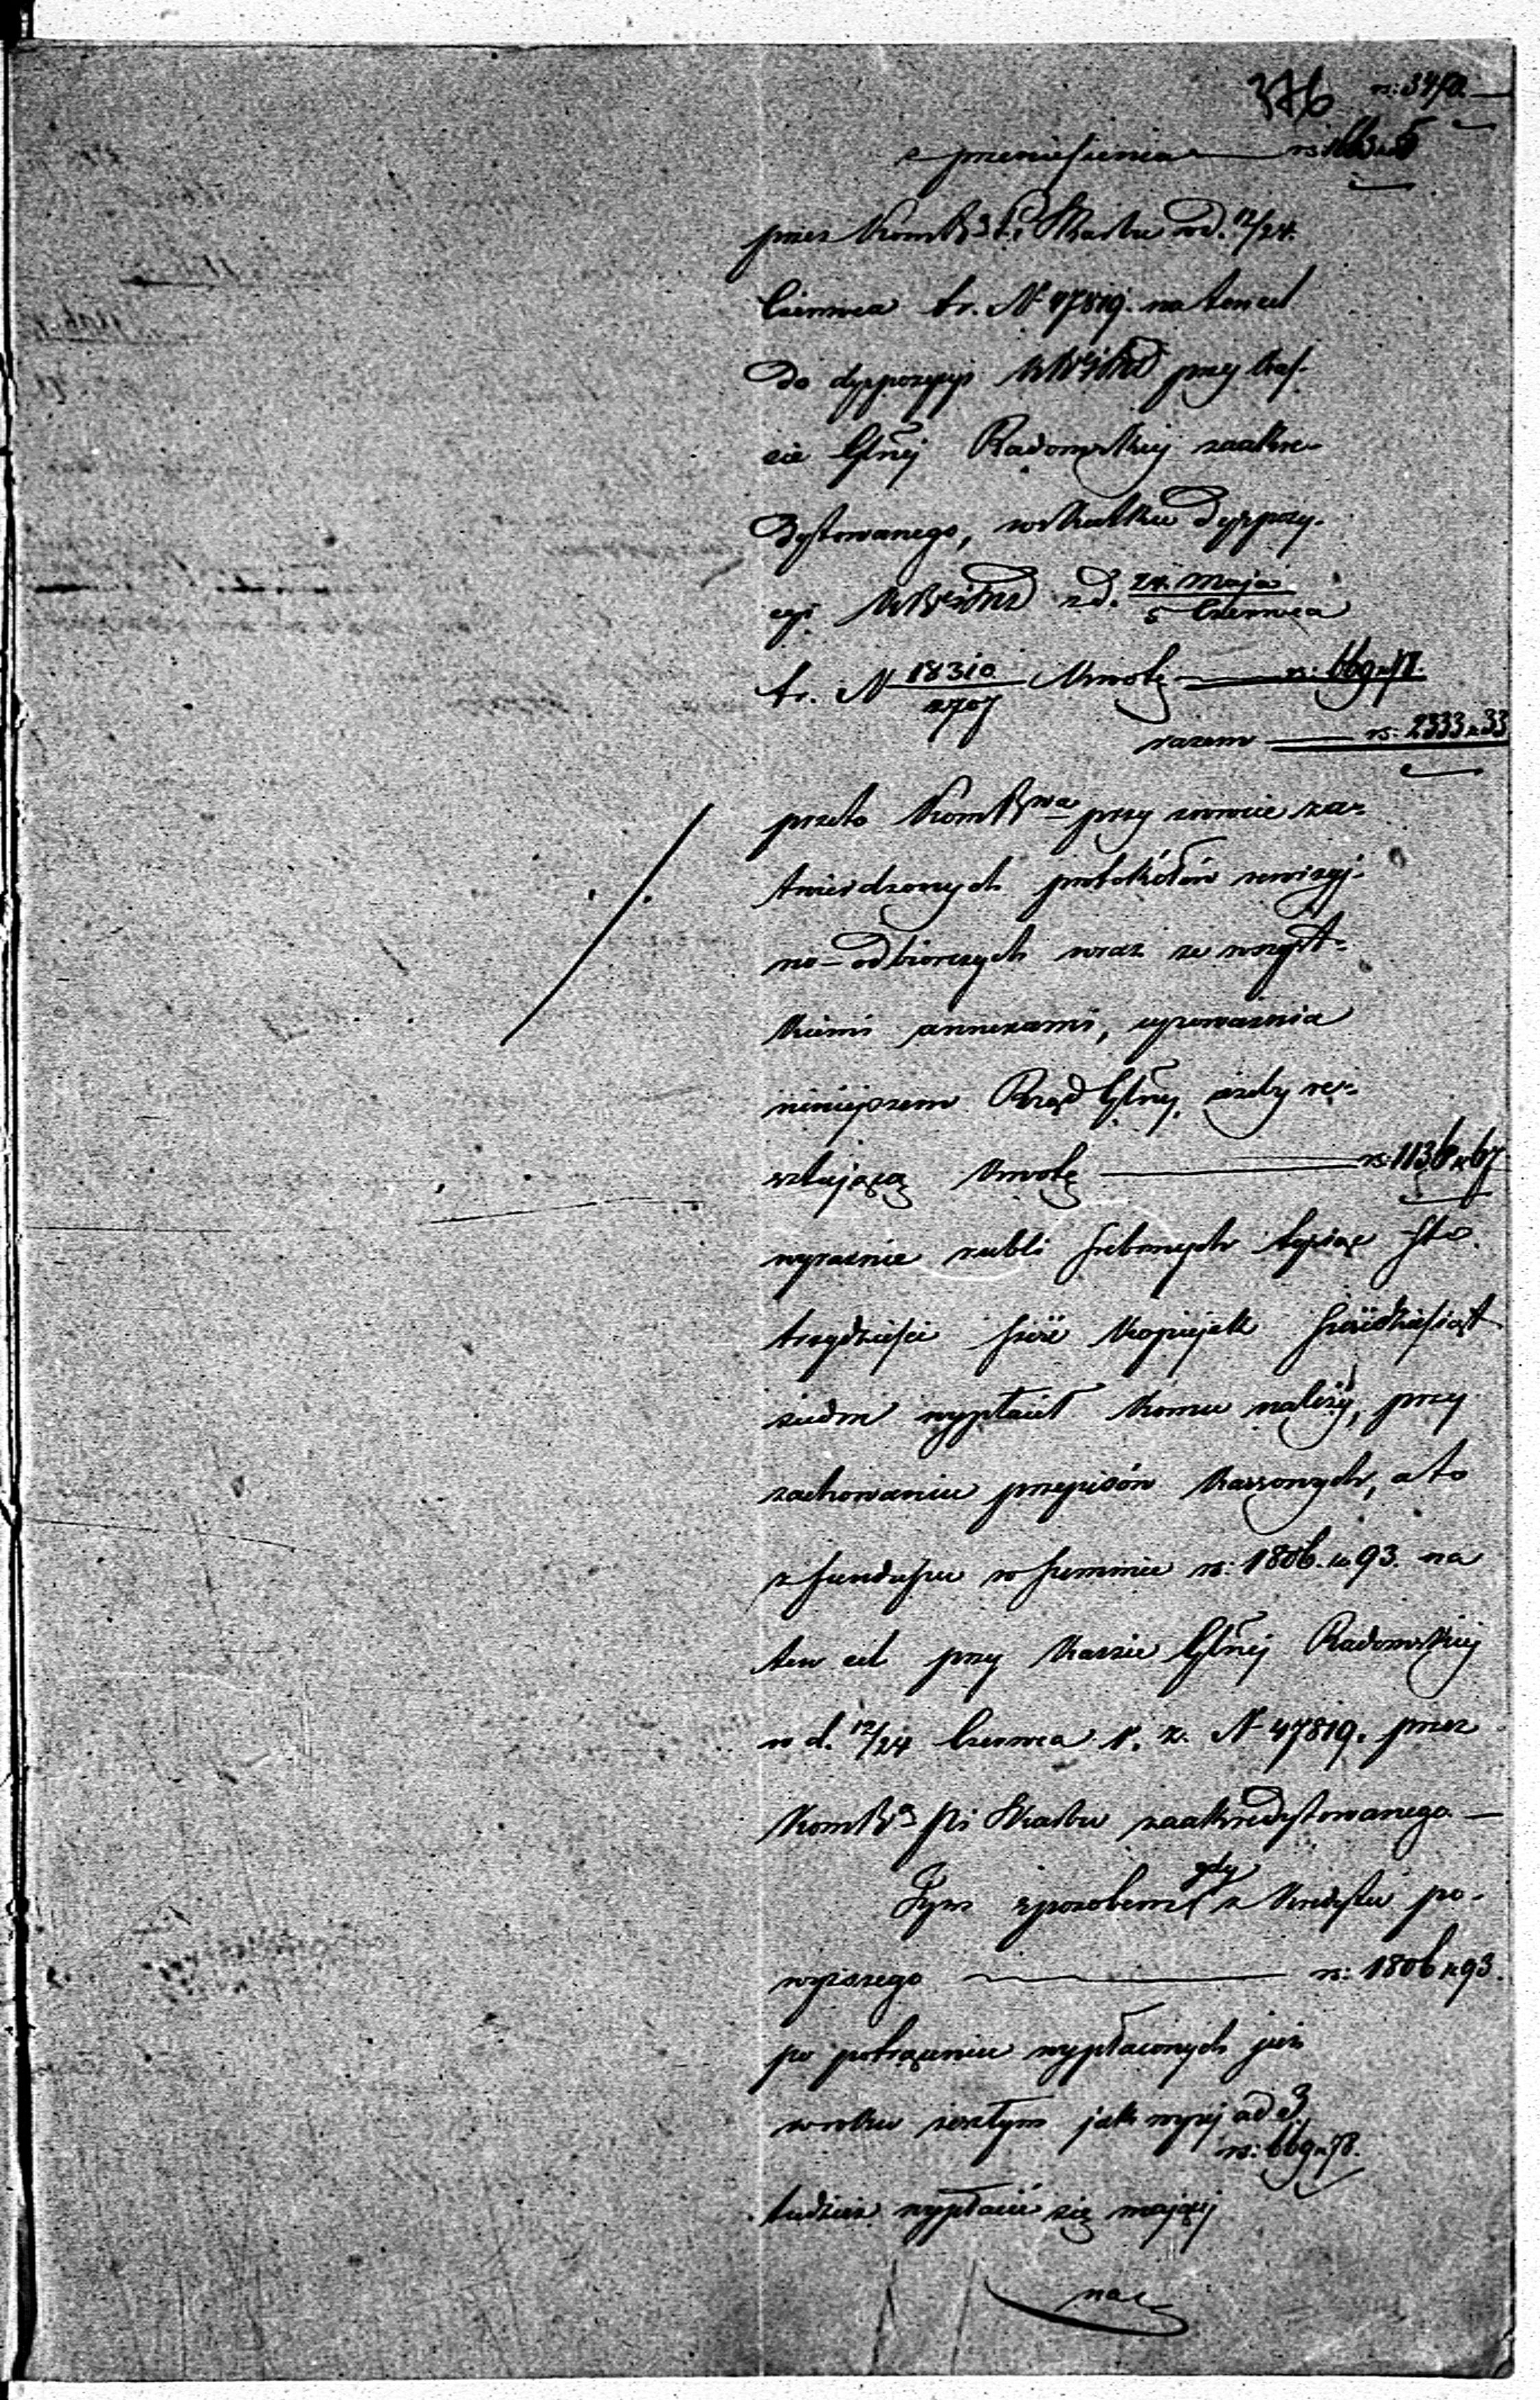 376 rs: 3470.—
z przeniesienia — rs: 1663 k 5
przez KomRz P. i Skarbu w d. 12/24.
Czerwca b.r. N 47819. na ten cel
do dyspozycyi przy Kas-
sie Głnéj Radomskiéj zaakre-
dytowanego, w skutku dyspozy-
cyi z d. 24. Maja / 5 Czerwca
b.r. N 18310/2707 Kwotę — rs: 669 k 78.
razem — rs: 2333 k 33
przeto KomRwa przy zwrocie za-
twierdzonych protokółów rewizyj-
no-odbiorczych wraz ze wszyst-
kiemi annexami, upoważnia
niniejszem Rząd Głny, ażeby re-
sztującą Kwotę — rs: 1136 k 67
wyraźnie rubli srebrnych tysiąc sto
trzydzieści sześć Kopiejek sześćdziesiąt
siedm wypłacił komu należy, przy
zachowaniu przepisów Kassowych, a to
z funduszu w summie rs: 1806. k 93. na
ten cel przy Kassie Głnéj Radomskiéj
w d. 12/24 Czerwca r. z. N 47819. przez
KomRz P. i Skarbu zaakredytowanego —
Tym sposobem gdy z Kredytu po-
wyższego — rs: 1806 k 93.
po potrąceniu wypłaconych już
w roku zeszłym jak wyżej ad 3.
rs: 669 k 78.
tudzież wypłacić się mającéj